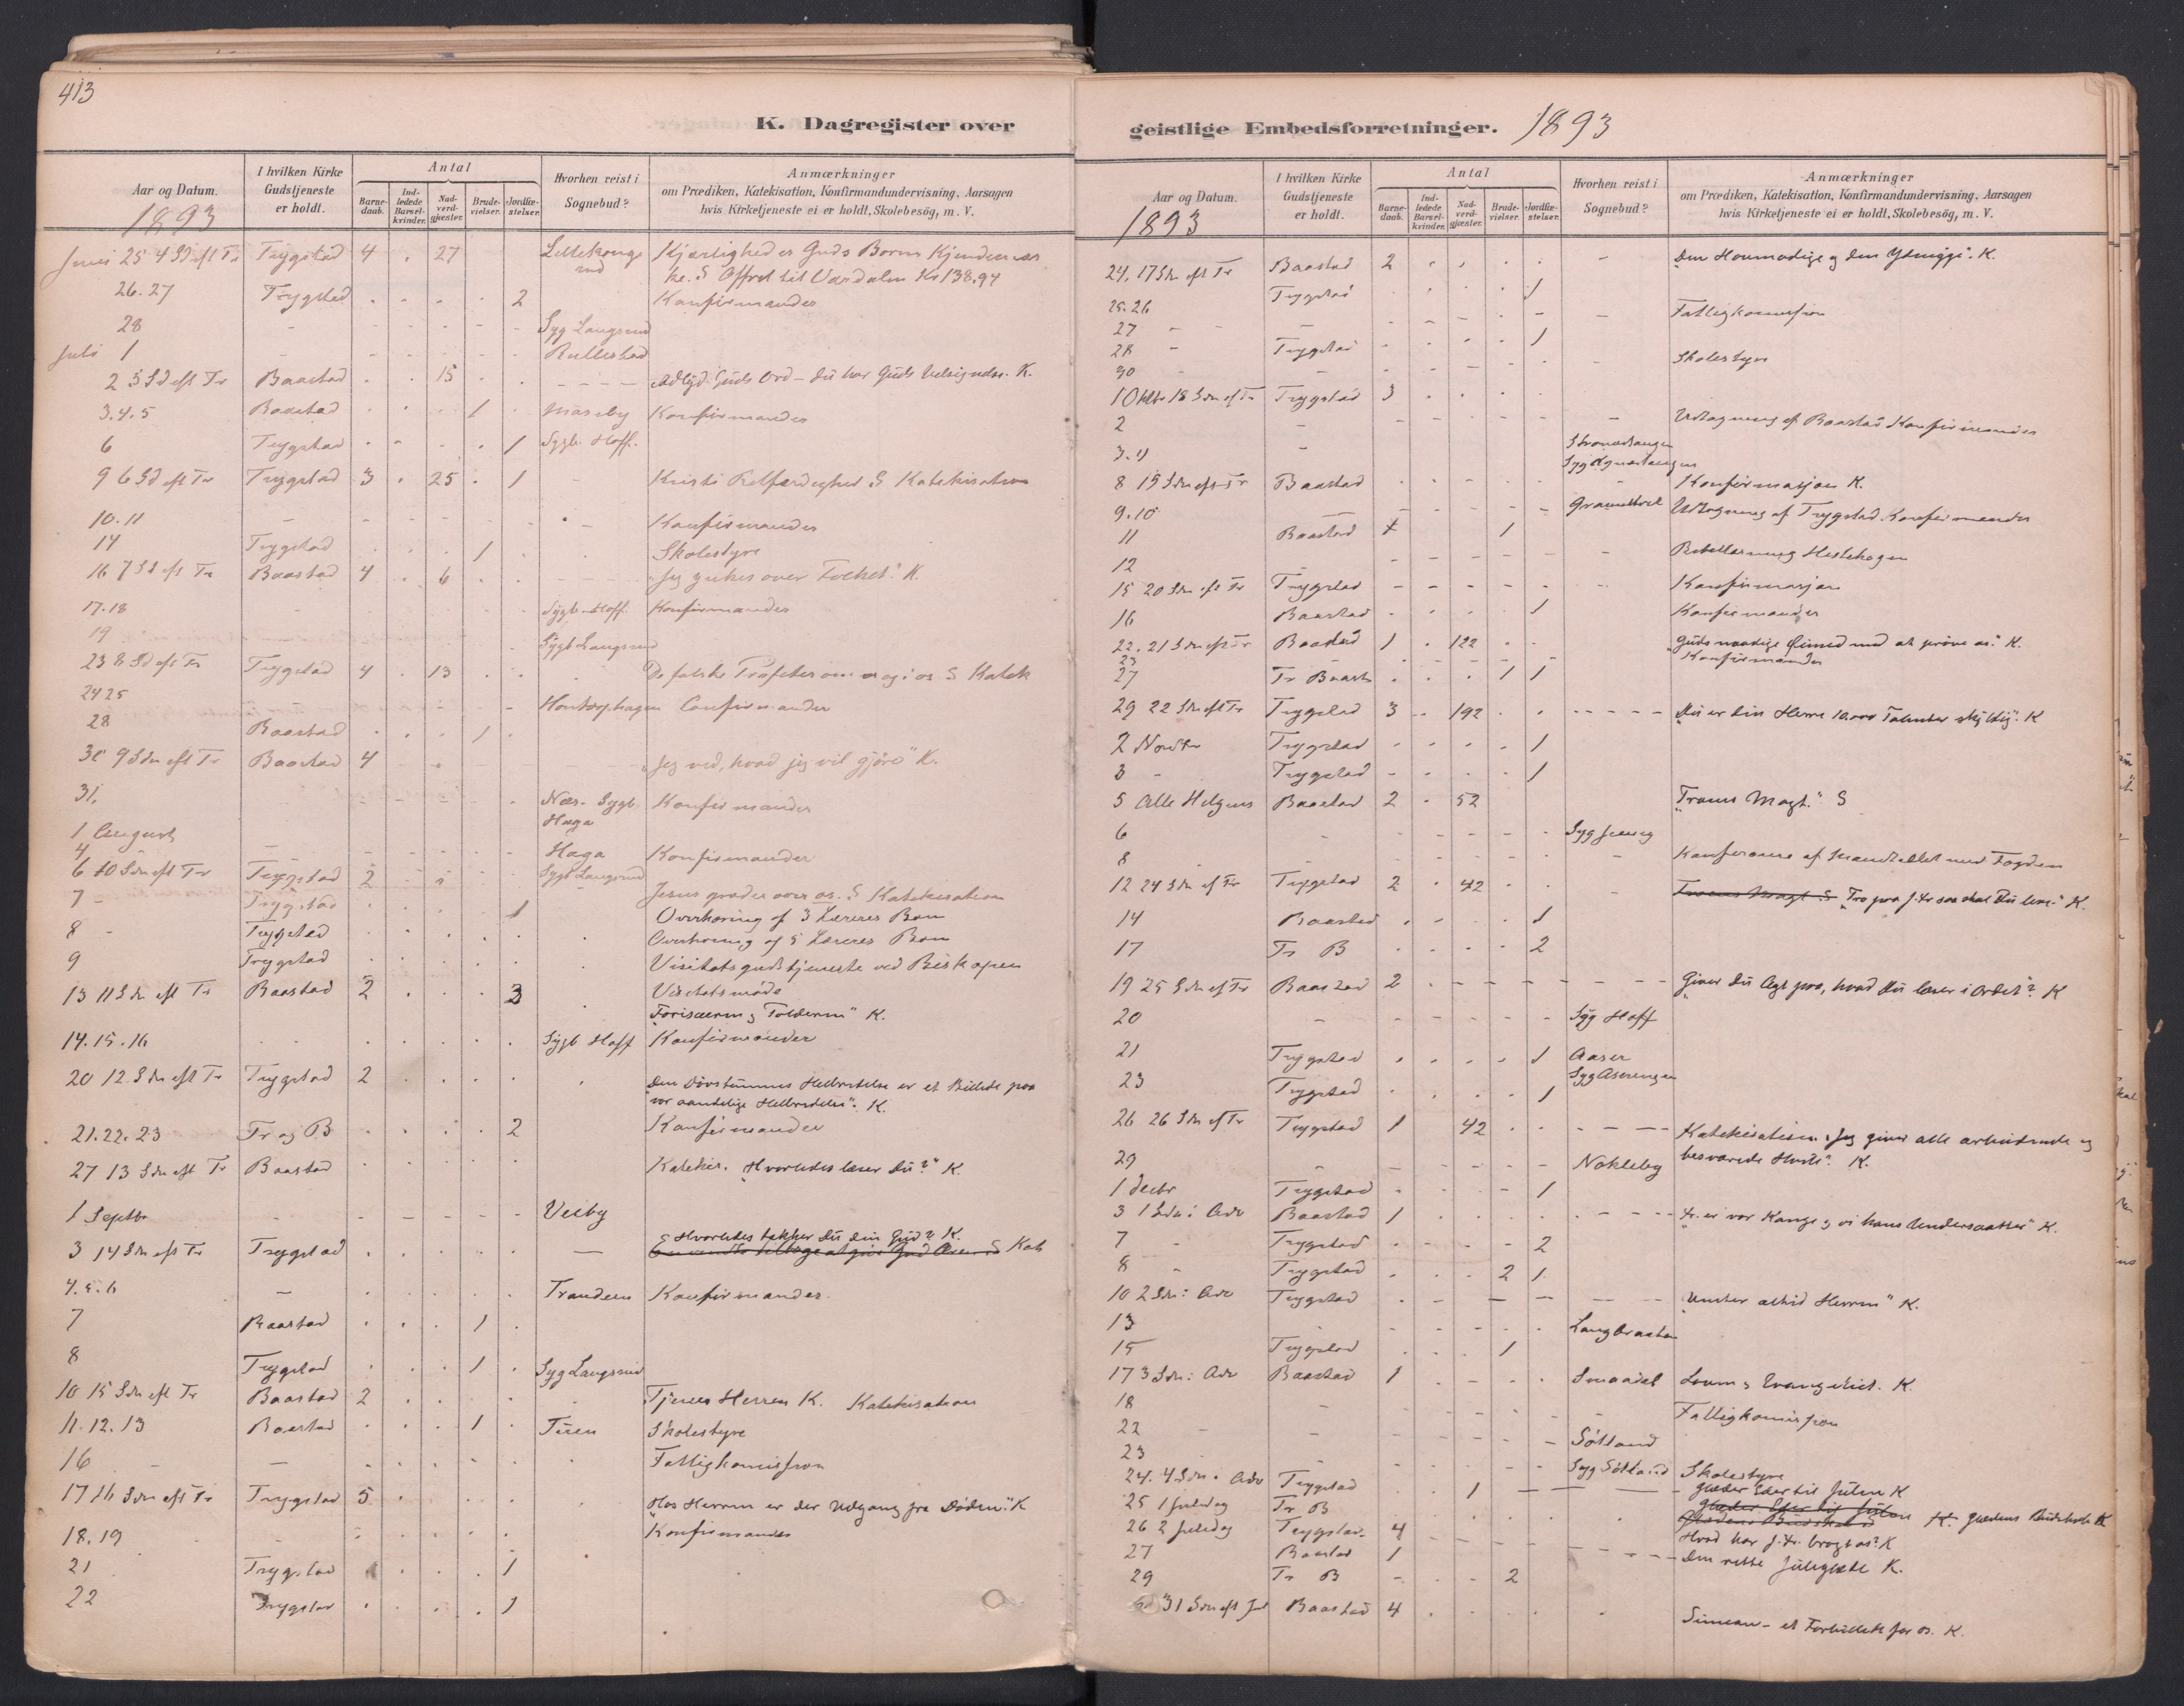 413
K. Dagregister over
Aar og Datum.
1893
I hvilken Kirke Gudstjeneste er holdt.
Antal
Barne-daab.
Ind-ledede Barsel-kvinder.
Nad-verd-gjæster.
Brude-vielser.
Jordfæ-stelser.
Hvorhen reist i Sognebud?
Anmærkninger
om Prædiken, Katekisation, Konfirmandundervisning, Aarsagen
hvis Kirketjeneste ei er holdt, Skolebesög, m. V.
Juni 25 4 Sd eft Tr Trygstad 4 . 27 Kjærlighed er Guds Borns Kjendemær
ke. S Offret til Værdalen Kr 138,94
26.27 Trygstad . . . . 2 Konfirmander
28 - Syg Langsrud
Juli 1 - Rullestad
2 5 Sd eft Tr Baastad . . 15 . . Adlyd Guds Ord - du har Guds Velsignelse. K.
3.4.5 Baastad . . . 1 . Maseby Konfirmander
6 Trygstad . . . . 1 Sygb. Hoff.
9 6 Sd eft Tr Trygstad 3 . 25 . 1 - Kristi Retfærdighed S Katekisation
10.11 - Konfirmander
14 Trygstad . . . 1 . Skolestyre
16 7 Sd eft Tr Baastad 4 . 6 . . "Jeg ynkes over Folket". K.
17.18 Sygb. Hoff. Konfirmander
19 Sygb Langsrud
23 8 Sd eft Tr Trygstad 4 . 13 . . De falske Profeter om og i os S Katek
24 25 Confirmander
28 Baastad . . . 1 .
30 9 Sdn eft Tr Baastad 4 "Jeg ved, hvad jeg vil gjöre" K.
31. Næs. Sygb. Konfirmander
Haga
1 August
4 - Haga Konfirmander
6 10 Sdn eft Tr Trygstad 2 Sygb Langsrud
Jesus græder over os. S Katekisation
7 - Trygstad . . . . 1 Overhoring af 3 Læreres Børn
8 - Trygstad . . . . . Overhoring af 5 Læreres Børn
9 Trygstad . . . . . Visitatsgudstjeneste ved Biskopen
13 11 Sdn eft Tr Baastad 2 . . . 3 Visitatsmöde
"Farisæeren og Tolderen" K.
14.15.16 Sygb Hoff Konfirmander
20 12 Sdn eft Tr Trygstad 2 Den Dövstummes Helbredelse er et Billede paa
vor aandelige Helbredelse". K.
21.22.23 Tr og B . . . . 2 Konfirmander
27 13 Sdn eft Tr Baastad Kateket. "Hvorledes læser Du?" K.
1 Septbr - Vesby
"Hvorledes takker Du din Gud? K.
3 14 Sdn eft Tr Trygstad . . . . . — Kat
4.5.6 — Trandem Konfirmander.
7 Baastad . . . 1 .
8 Trygstad . . . 1 . Syg Langsrud
10 15 Sdn eft Tr Baastad 2 Tjener Herren K. Katekisation
11.12.13 Baastad . . . 1 . Skolestyre
16 - — Fattigkomission
17 16 Sdn eft Tr Trygstad 5 "Hos Herren er der Udgang fra Döden". K
18.19 Konfirmander
21 Trygstad . . . . 1
22 Trygstad . . . . 1
geistlige Embedsforretninger. 1893
Aar og Datum.
1893
I hvilken Kirke Gudstjeneste er holdt.
Antal
Barne-daab.
Ind-ledede Barsel-kvinder.
Nad-verd-gjæster.
Brude-vielser.
Jordfæ-stelser.
Hvorhen reist i Sognebud?
Anmærkninger
om Prædiken, Katekisation, Konfirmandundervisning, Aarsagen
hvis Kirketjeneste ei er holdt, Skolebesög, m. V.
24. 17 Sdn eft Tr Baastad 2 . . . . - "Den Hovmodige og den Ydmyge". K.
25.26 Trygstad . . . . 1
27 - - Fattigkomission
28 - Trygstad . . . . 1
30 - Skolestyre
1 Oktbr 18 Sdn eft Tr Trygstad 3
2 - Udtagning af Baastad Konfirmander
3.4 -
8 19 Sdn eft Tr Baastad Konfirmasjon K.
9.10 — Udtagning af Trygstad Konfirmander
11 Baastad 1 1
12
15 20 Sdn eft Tr Trygstad Konfirmasjon
16 Baastad . . . . 1 Konfirmander
22. 21 Sdn eft Tr Baastad 1 . 122 . . "Guds naadige Öiemed med at pröve os". K.
23 Konfirmander
27 Tr Baast . . . 1 1
29 22 Sdn eft Tr Trygstad 3 . 192 . . "Du er din Herre 10,000 Talenter skyldig". K
2 Novbr Trygstad . . . . 1
3 - Trygstad . . . . 1
5 Alle Helgens Baastad 2 . 52 "Troens Magt." S
6 -
8 - Konferanse af Mandtallet med Fogden
12 24 Sdn eft Tr Trygstad 2 . 42 . . - Troens Magt S "Tro paa J. Kr saa skal Du leve." K.
14 Baastad . . . . 1
17 Tr B . . . . 2
19 25 Sdn eft Tr Baastad 2 "Giver Du Agt paa, hvad Du læser i Ordet"? K
20 - Syg Hoff
21 Trygstad . . . . 1 Aaser
Syg Aserengen
23 Trygstad . . . . 1
26 26 Sdn eft Tr Trygstad 1 42 . . Katekisation. "Jeg giver alle arbeidende og
besværede Hvile". K.
29 - Nokleby
1 Decbr Trygstad . . . - 1
3 1 Sdn i Adv Baastad 1 "Kr. er vor Konge og vi hans Undersaatter" K.
7 - Trygstad . . . . 2
8 - Trygstad . . . 2 1
10 2 Sdn i Adv Trygstad "Venter altid Herren" K.
13 - Langbraaten
15 Trygstad . . . 1
17 3 Sdn i Adv Baastad 1 Smaadal Loven og Evangeliet. K.
18 - Fattigkomission
22 - Sötland
23 - Syg Sötland Skolestyre
24. 4 Sdn i Adv Trygstad . . 1 Glæder Eder til Julen K
25 1 Juledag Tr B Glæder Eder til Julen K. Glædens Budskab K
26 2 Juledag Trygstad 4 Hvad har J. Kr. bragt os? K
27 Baastad 1 Den rette Juleglæde K.
29 Tr B . . . 2
31 Sdn eft Jul Baastad 4 Simeon - et Forbillede for os. K.